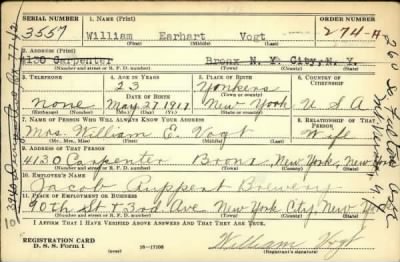 SERIAL NUMBER 1. NAME (Print) ORDER NUMBER
3557 William Earhart Vogt 274-A
(First) (Middle) (Last)
2. ADDRESS (Print)
4130 Carpenter Bronx N. Y. City, N. Y.
(Number and street or R. F. D. number) (Town) (County) (State)
3. TELEPHONE 4. AGE IN YEARS 5. PLACE OF BIRTH 6. COUNTRY OF CITIZENSHIP
23 Yonkers
DATE OF BIRTH (Town or county)
None May 27 1917 New York U S A
(Exchange) (Number) (Mo.) (Day) (Yr.) (State or country)
7. NAME OF PERSON WHO WILL ALWAYS KNOW YOUR ADDRESS 8. RELATIONSHIP OF THAT PERSON
Mrs. William E. Vogt Wife
(Mr., Mrs., Miss) (First) (Middle) (Last)
9. ADDRESS OF THAT PERSON
4130 Carpenter Bronx New York, New York
(Number and street or R. F. D. number) (Town) (County) (State)
10. EMPLOYER'S NAME
Jacob Ruppert Brewery
11. PLACE OF EMPLOYMENT OR BUSINESS
90th St & 3rd Ave New York City, New York
(Number and street or R. F. D. number) (Town) (County) (State)
I AFFIRM THAT I HAVE VERIFIED ABOVE ANSWERS AND THAT THEY ARE TRUE.
REGISTRATION CARD
D. S. S. Form 1 16—17105
William Vogt
(Registrant's signature)